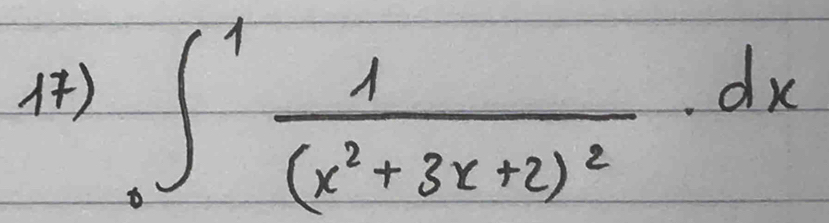 17) ∫₀¹ 1/(x² + 3x + 2)² . dx